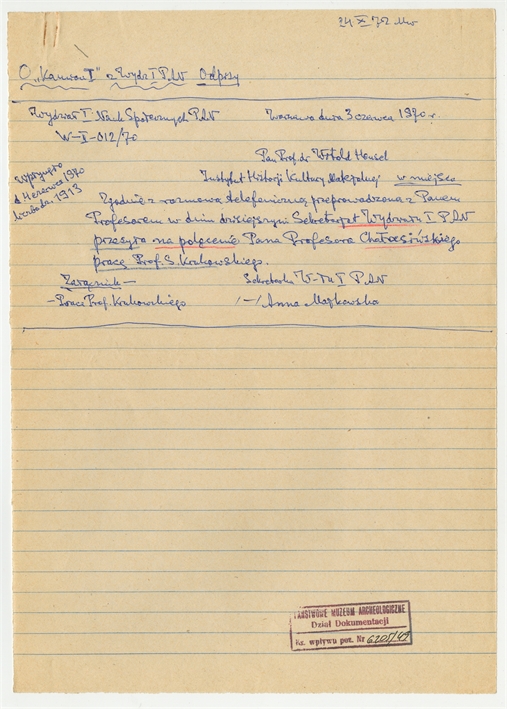 24 XI 72 Mw
O „Kamwon I" z Wydz I PAN Odpisy
Wydział I Nauk Społecznych PAN
Warszawa dnia 3 czerwca 1970 r.
W-I-012/70
Pan Prof. dr Witold Hensel
Instytut Historji Kultury Materjalnej w miejscu
Wpłynęło
d 4 czerwca 1970
Liczba dz. 1913
Zgodnie z rozmową telefoniczną przeprowadzoną z Panem
Profesorem w dniu dzisiejszym Sekretarjat Wydziału I PAN
przesyła na polecenie Pana Profesora Chałasińskiego
pracę Prof. S. Krukowskiego.
Załącznik —
Sekretarka W-łu I PAN
– Praca Prof. Krukowskiego
/–/ Anna Majkowska
PAŃSTWOWE MUZEUM ARCHEOLOGICZNE
Dział Dokumentacji
Ks. wpływu poz. Nr 6205/49